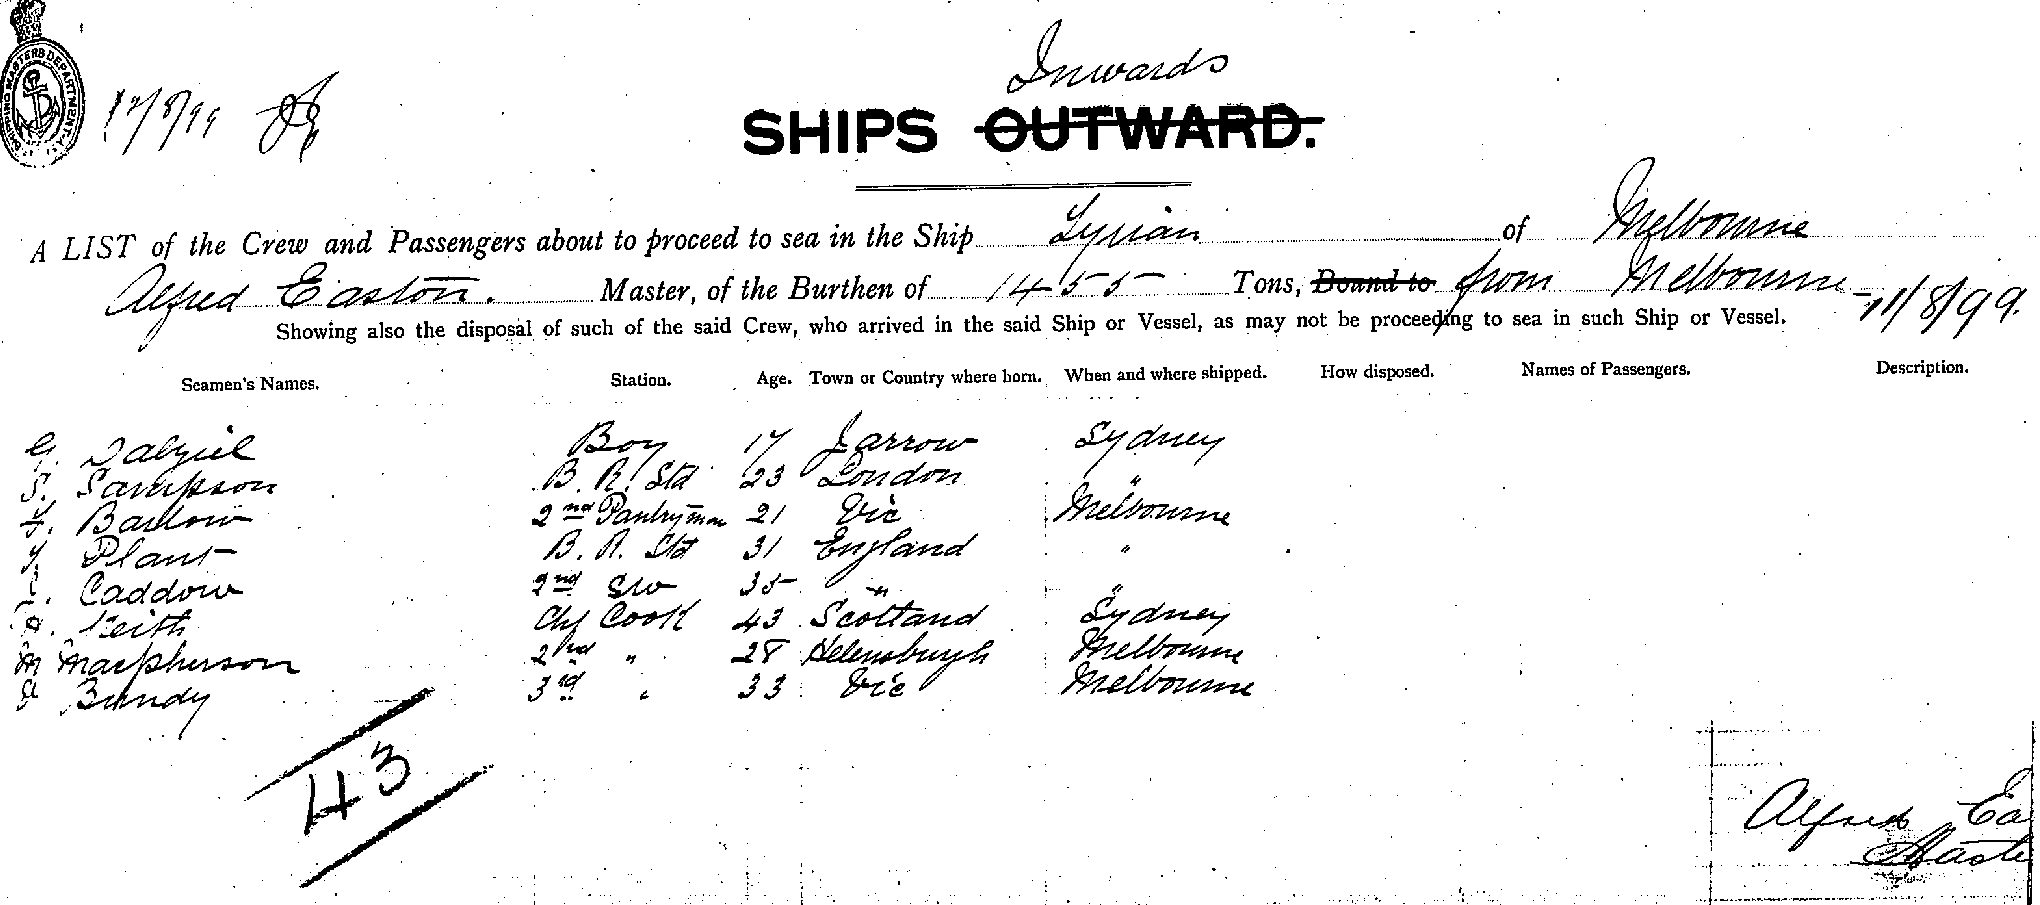 Inwards
SHIPPING MASTERS DEPARTMENT
17/8/99
SHIPS OUTWARD.
A LIST of the Crew and Passengers about to proceed to sea in the Ship Tyrian of Melbourne
Alfred Easton. Master, of the Burthen of 1455 Tons, Bound to from Melbourne - 11/8/99.
Showing also the disposal of such of the said Crew, who arrived in the said Ship or Vessel, as may not be proceeding to sea in such Ship or Vessel.
Seamen's Names. Station. Age. Town or Country where born. When and where shipped. How disposed. Names of Passengers. Description.
G. Dalziel Boy 17 Jarrow Sydney
S. Sampson B. R. Std 23 London "
Barlow 2nd Pantryman 21 Vic Melbourne
Plant B. R. Std 31 England "
Caddow 2nd Sto 35 " "
A. Keith Chf Cook 43 Scotland Sydney
M Macpherson 2nd " 28 Helensburgh Melbourne
Bundy 3rd " 33 Vic Melbourne
43
Alfred Ea
Maste